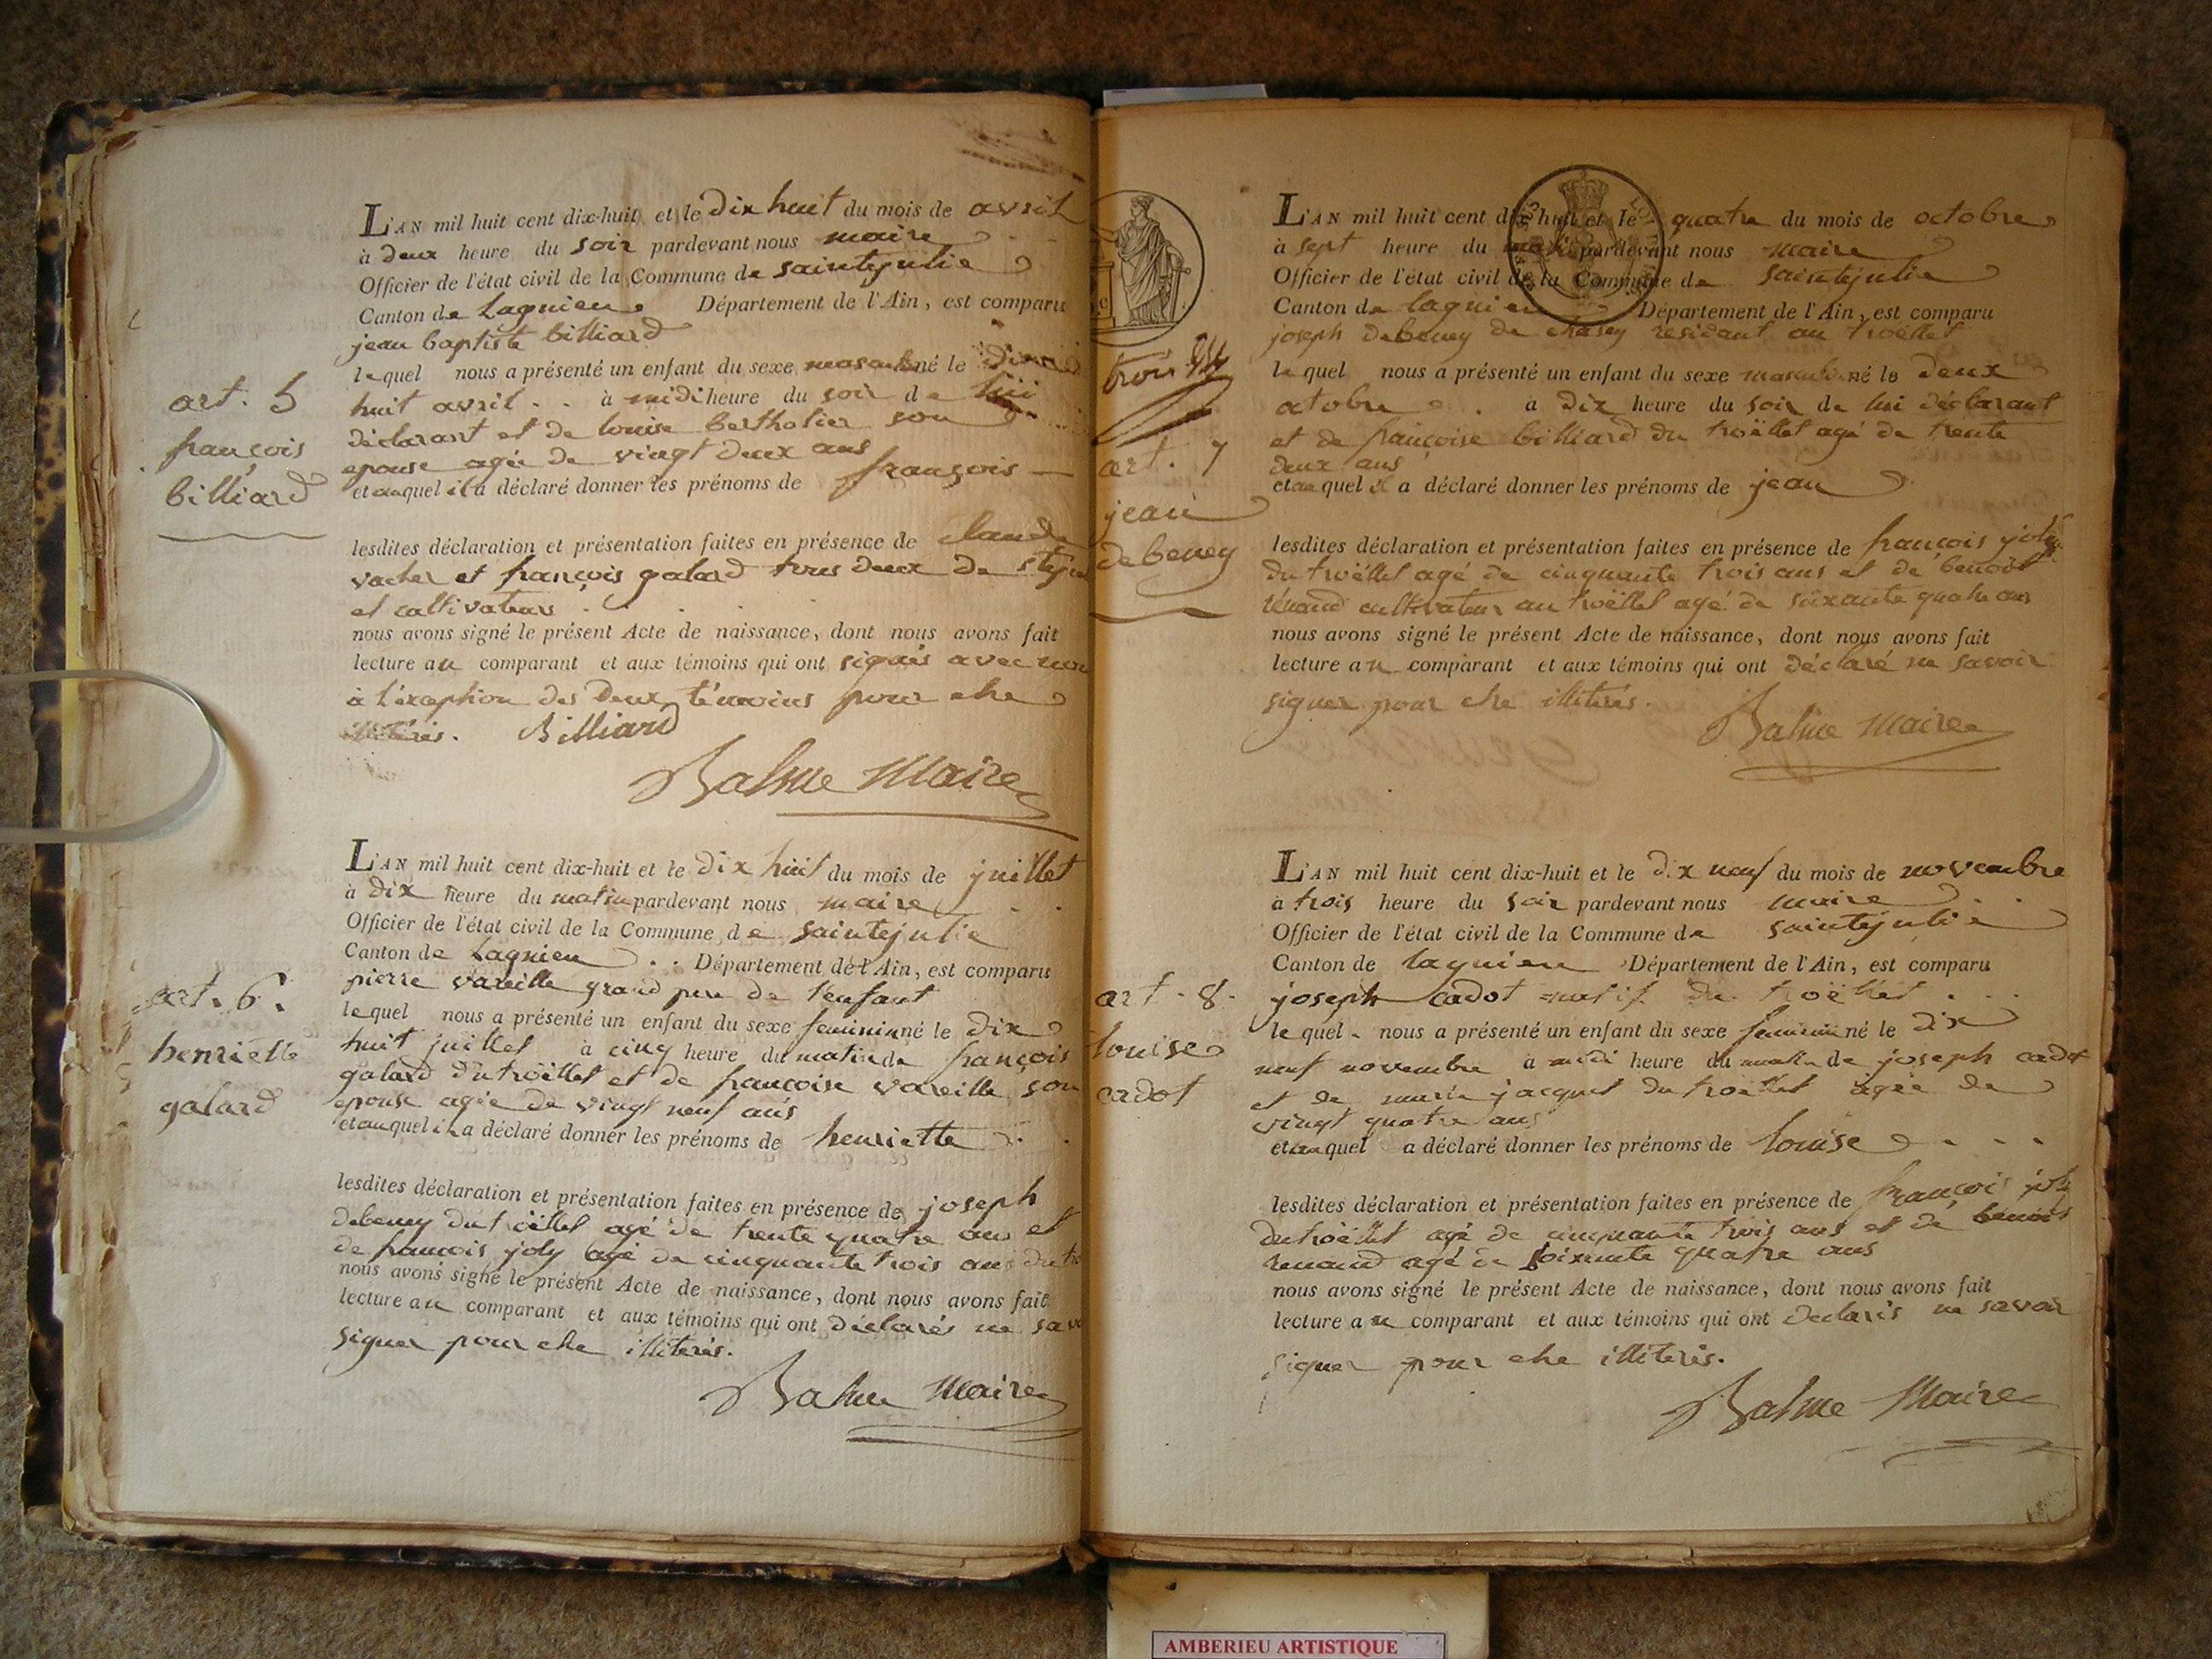 art. 5
françois
billiard
L'AN mil huit cent dix-huit et le dix huit du mois de avril
à deux heure du soir pardevant nous maire
Officier de l'état civil de la Commune de saintejulie
Canton de Lagnieu Département de l'Ain, est comparu
jean baptiste billiard
lequel nous a présenté un enfant du sexe masculin né le dix
huit avril à midi heure du soir de lui
déclarant et de louise bertholier son
epouse agée de vingt deux ans
et auquel il a déclaré donner les prénoms de françois
lesdites déclaration et présentation faites en présence de claude
vacher et françois galard tous deux de
et cultivateurs
nous avons signé le présent Acte de naissance, dont nous avons fait
lecture au comparant et aux témoins qui ont signés avec nous
à l'exception des deux témoins pour etre
illiterés. Billiard
Balme Maire
art. 6.
henriette
galard
L'AN mil huit cent dix-huit et le dix huit du mois de juillet
à dix heure du matin pardevant nous maire
Officier de l'état civil de la Commune de saintejulie
Canton de Lagnieu Département de l'Ain, est comparu
pierre vareille grand pere de l'enfant
lequel nous a présenté un enfant du sexe feminin né le dix
huit juillet à cinq heure du matin de françois
galard du troëllet et de francoise vareille son
epouse agée de vingt neuf ans
et auquel il a déclaré donner les prénoms de henriette
lesdites déclaration et présentation faites en présence de joseph
debeney du troëllet agé de trente quatre ans et
de francois joly agé de cinquante trois ans du
nous avons signé le présent Acte de naissance, dont nous avons fait
lecture au comparant et aux témoins qui ont déclarés ne
signer pour etre illiterés.
Balme Maire
trois
art. 7
jean
debeney
L'AN mil huit cent dix-huit et le quatre du mois de octobre
à sept heure du pardevant nous maire
Officier de l'état civil de la Commune de saintejulie
Canton de lagnieu Département de l'Ain, est comparu
joseph debeney de chasey residant au troëllet
lequel nous a présenté un enfant du sexe masculin né le deux
octobre a dix heure du soir de lui déclarant
et de françoise billiard du troëllet agé de trente
deux ans
et auquel il a déclaré donner les prénoms de jean
lesdites déclaration et présentation faites en présence de françois joly
du troëllet agé de cinquante trois ans et de benoît
renand cultivateur au troëllet agé de soixante quatre ans
nous avons signé le présent Acte de naissance, dont nous avons fait
lecture au comparant et aux témoins qui ont déclaré ne savoir
signer pour etre illiterés.
Balme Maire
art. 8.
louise
cadot
L'AN mil huit cent dix-huit et le dix neuf du mois de novembre
à trois heure du soir pardevant nous maire
Officier de l'état civil de la Commune de saintejulie
Canton de lagnieu Département de l'Ain, est comparu
joseph cadot natif du troëllet
lequel nous a présenté un enfant du sexe feminin né le dix
neuf novembre à midi heure du matin de joseph cadot
et de marie jacquet du troëllet agée de
vingt quatre ans
et auquel a déclaré donner les prénoms de louise
lesdites déclaration et présentation faites en présence de françois joly
du troëllet agé de cinquante trois ans et de benoit
renand agé de soixante quatre ans
nous avons signé le présent Acte de naissance, dont nous avons fait
lecture au comparant et aux témoins qui ont declarés ne savoir
signer pour etre illiterés.
Balme Maire
AMBERIEU ARTISTIQUE